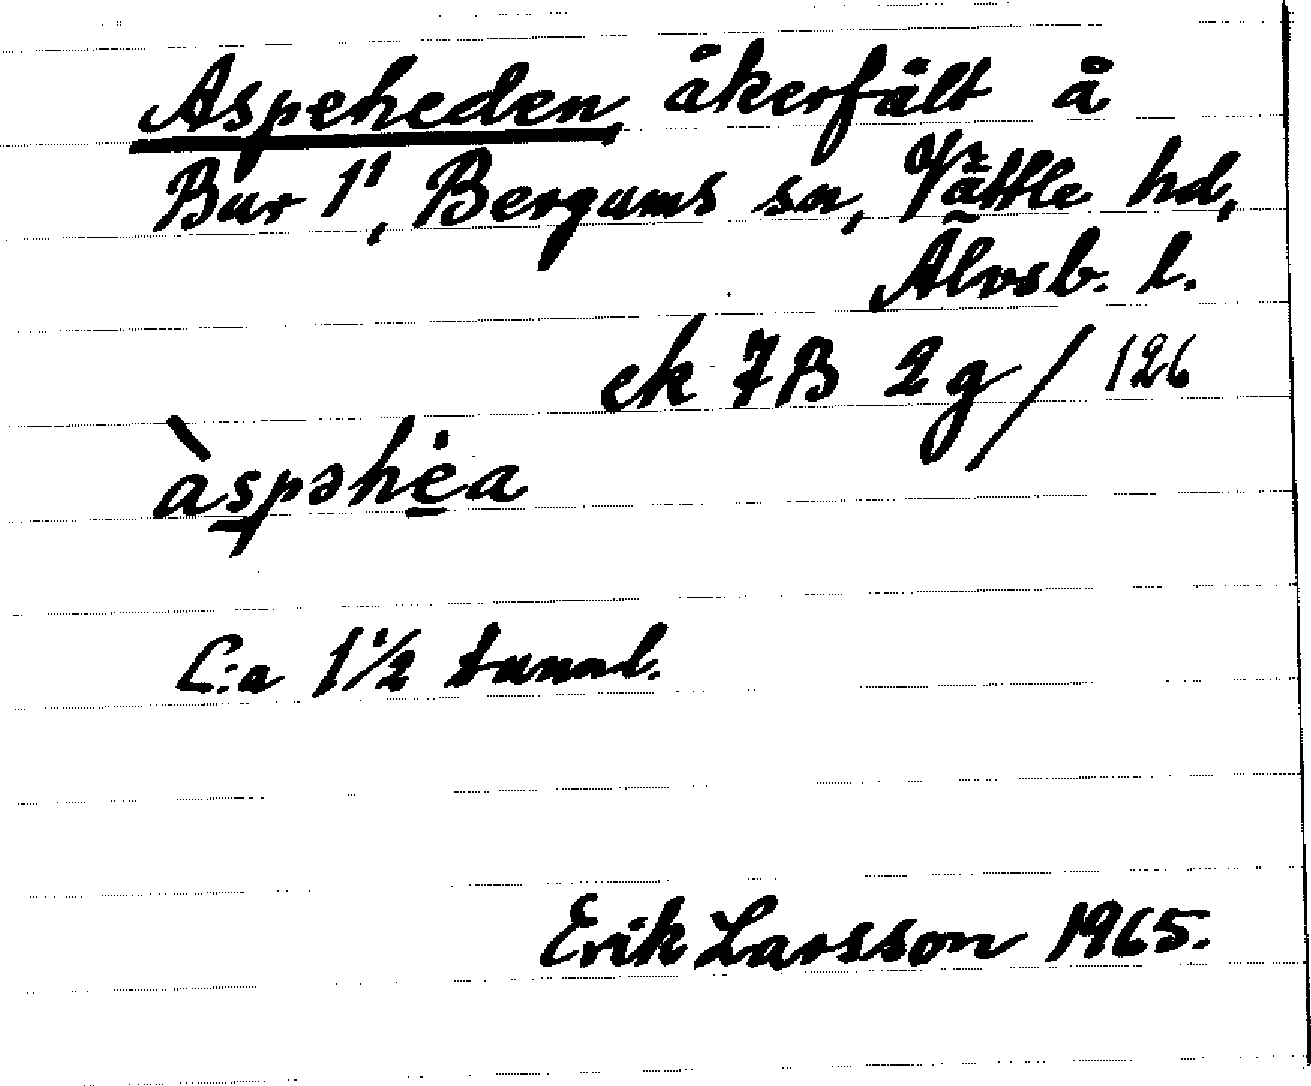 Aspeheden, åkerfält å
Bur 1¹, Bergums sn, Vättle hd,
Älvsb. l.
ek 7B 2g/126
àspəhėa
C:a 1½ tunnl.
Erik Larsson 1965.